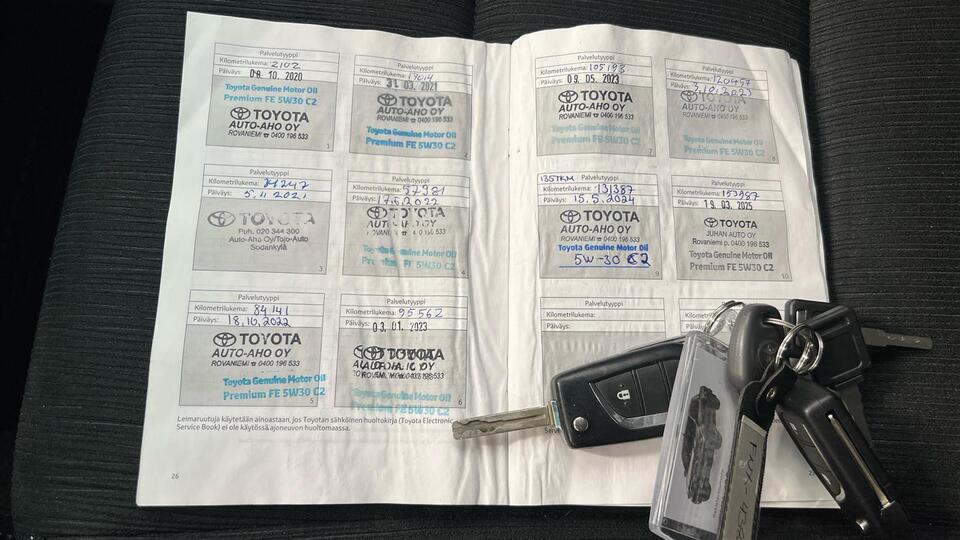 Palvelutyyppi
Kilometrilukema: 2102
Päiväys: 09. 10. 2020
Toyota Genuine Motor Oil
Premium FE 5W30 C2
TOYOTA
AUTO-AHO OY
ROVANIEMI ☎ 0400 196 533
1
Palvelutyyppi
Kilometrilukema: 19014
Päiväys: 31. 03. 2021
TOYOTA
AUTO-AHO OY
ROVANIEMI ☎ 0400 196 533
Toyota Genuine Motor Oil
Premium FE 5W30 C2
2
Palvelutyyppi
Kilometrilukema:
Päiväys: 5.11.2021
TOYOTA
Puh. 020 344 300
Auto-Aho Oy/Tojo-Auto
Sodankylä
3
Palvelutyyppi
Kilometrilukema: 57981
Päiväys: 17.6.2022
TOYOTA
4
Palvelutyyppi
Kilometrilukema: 84141
Päiväys: 18.10.2022
TOYOTA
AUTO-AHO OY
ROVANIEMI ☎ 0400 196 533
Toyota Genuine Motor Oil
Premium FE 5W30 C2
5
Palvelutyyppi
Kilometrilukema: 95562
Päiväys: 03. 01. 2023
TOYOTA
Toyota Genuine Motor Oil
Premium FE 5W30 C2
6
Leimaruutuja käytetään ainoastaan, jos Toyotan sähköinen huoltokirja (Toyota Electronic
Service Book) ei ole käytössä ajoneuvon huoltomaassa.
26
Palvelutyyppi
Kilometrilukema: 105193
Päiväys: 09. 05. 2023
TOYOTA
AUTO-AHO OY
ROVANIEMI ☎ 0400 196 533
Toyota Genuine Motor Oil
Premium FE 5W30 C2
7
Palvelutyyppi
Kilometrilukema: 120457
Päiväys: 3.10.2023
TOYOTA
AUTO-AHO OY
ROVANIEMI ☎ 0400 196 533
Toyota Genuine Motor Oil
Premium FE 5W30 C2
8
135TKM
Palvelutyyppi
Kilometrilukema: 131387
Päiväys: 15.5.2024
TOYOTA
AUTO-AHO OY
ROVANIEMI ☎ 0400 196 533
Toyota Genuine Motor Oil
5W-30 C2
9
Palvelutyyppi
Kilometrilukema:
Päiväys: 19. 03. 2025
TOYOTA
JUHAN AUTO OY
Rovaniemi p. 0400 196 533
Toyota Genuine Motor Oil
Premium FE 5W30 C2
10
Palvelutyyppi
Kilometrilukema:
Päiväys: